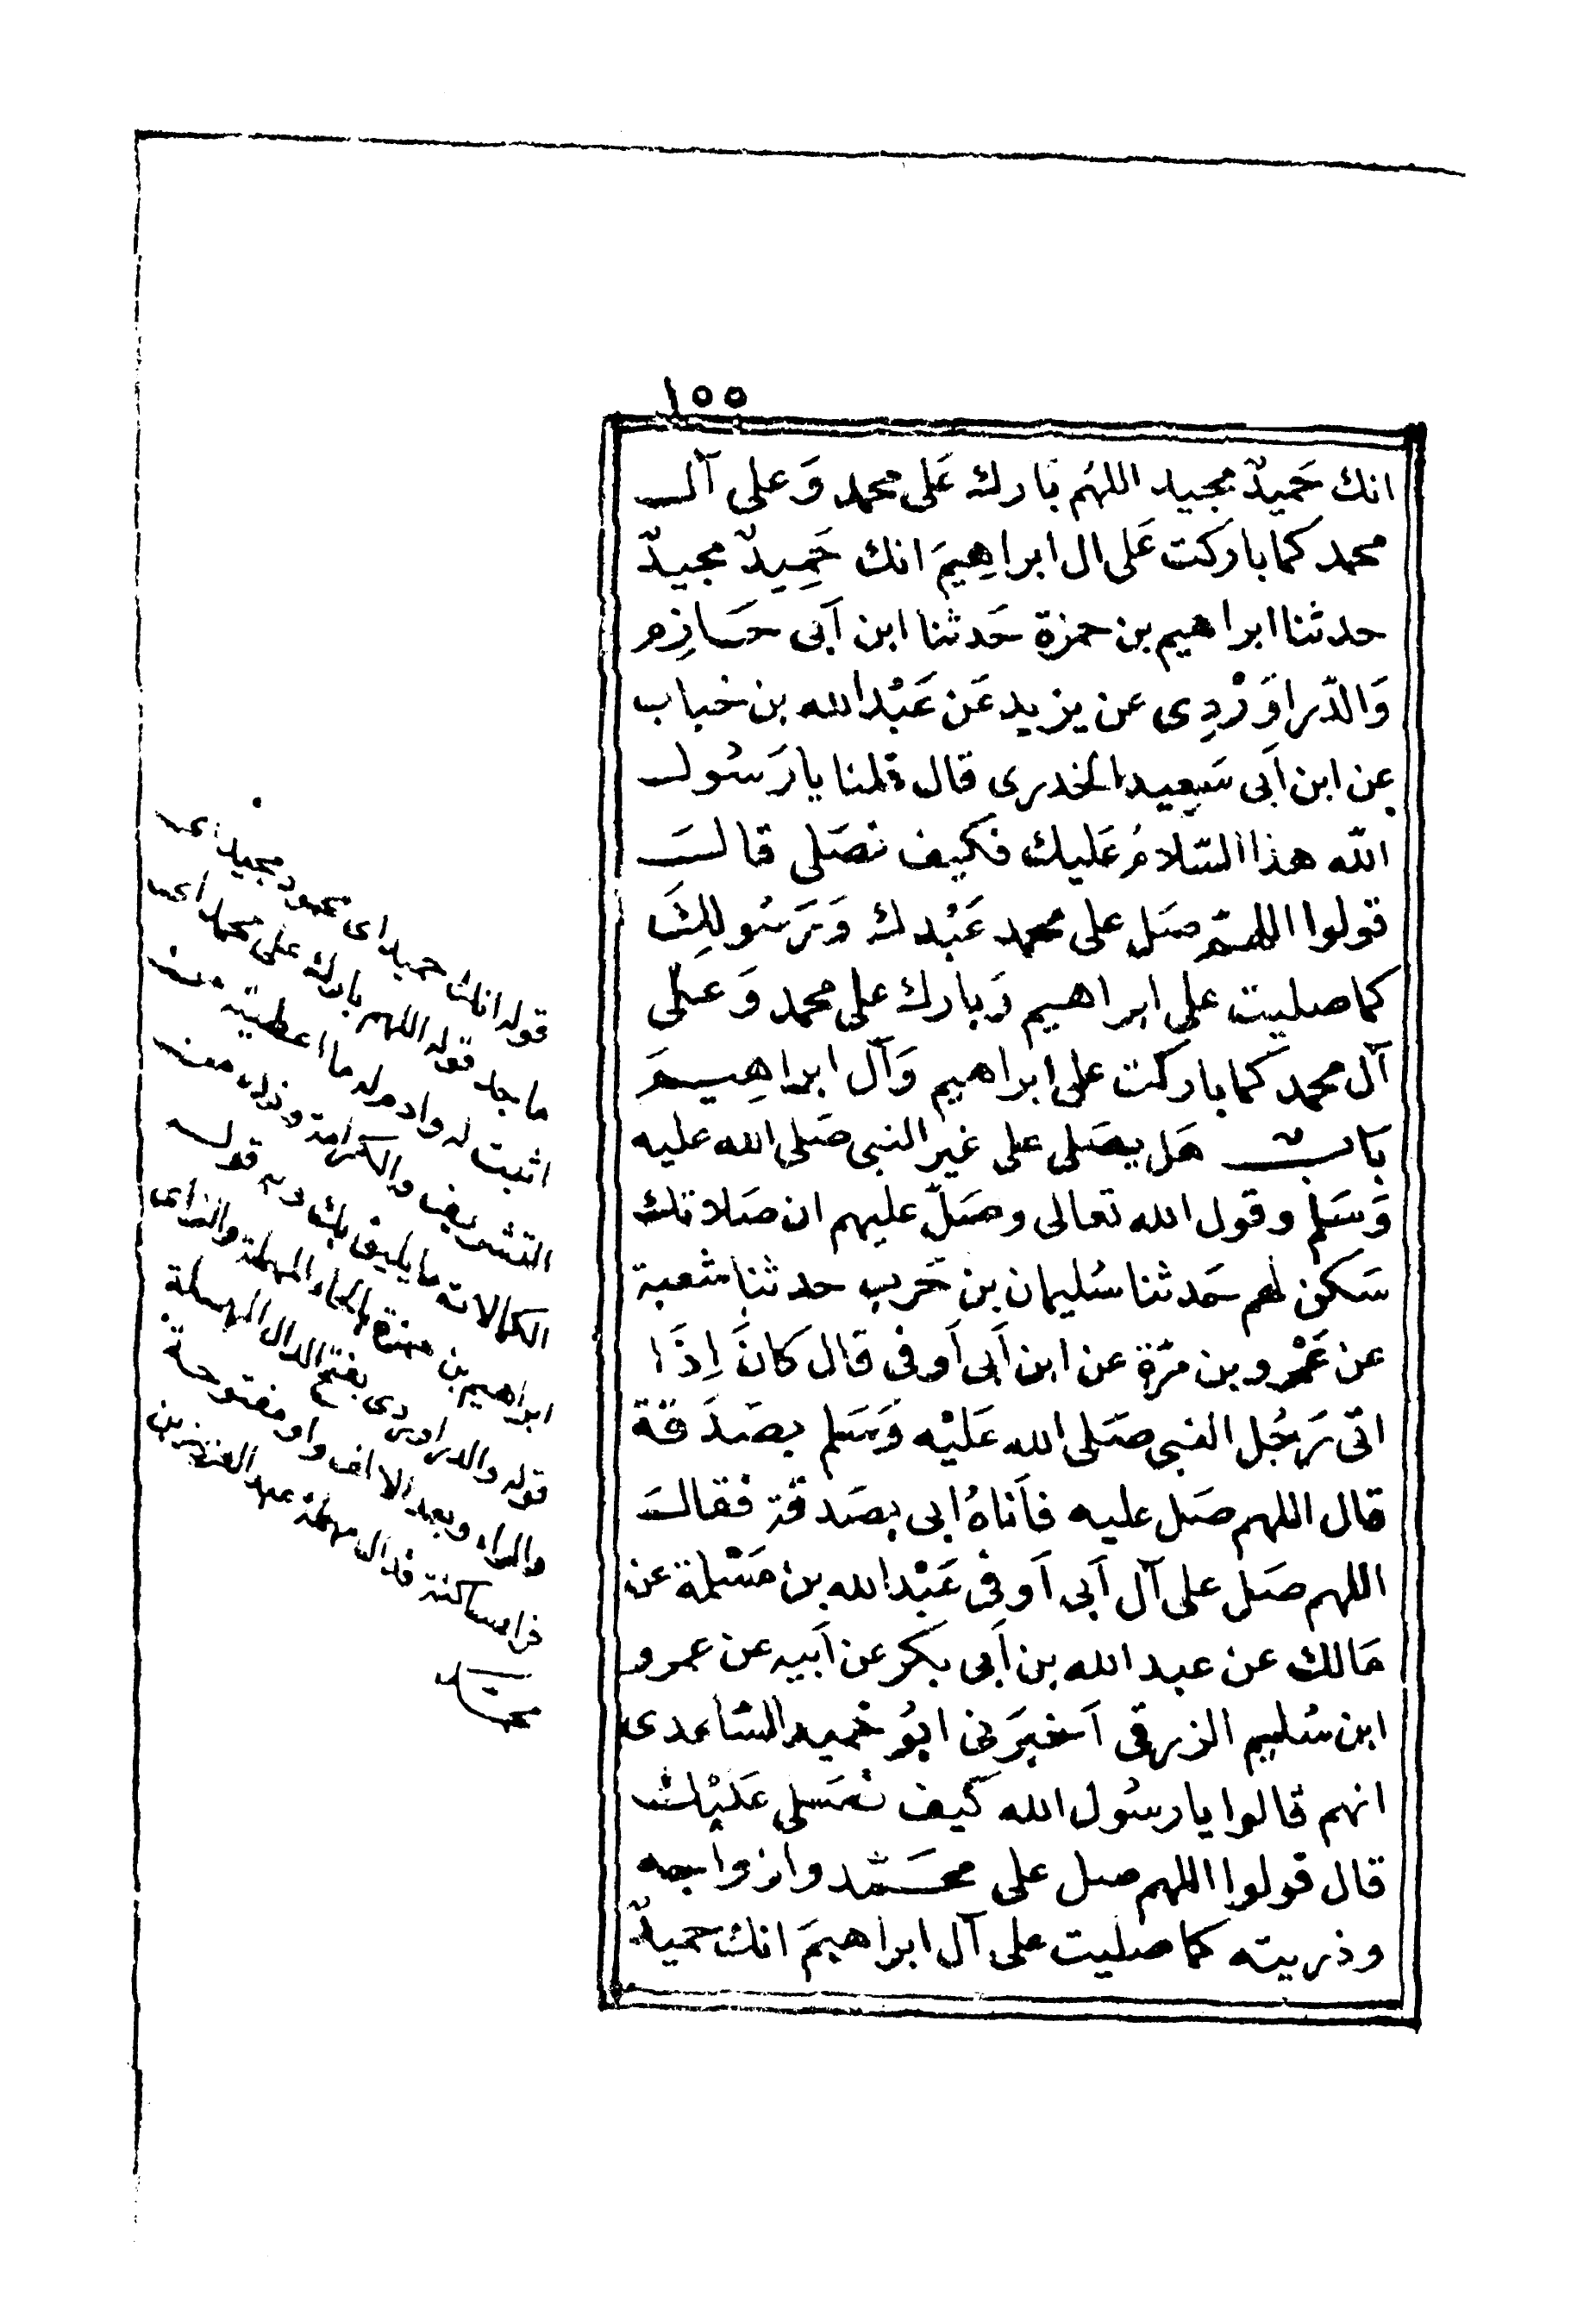 ١٥٥
انك حَميدٌ مجيد اللهُم بَارك عَلى محمد وَعلى آل
محمد كما باركت عَلى ال ابراهِيمَ انك حَمِيدٌ مجيدٌ
حدثنا ابراهيم بن حمزة حَدثنا ابن اَبى حَازِم
وَالدّراوَرْدِى عن يزيد عَن عَبْد الله بن خباب
عن ابن اَبى سَعِيد الخدرى قال قلنا يا رَسُول
الله هذا السّلامُ عَليك فكيف نصَلى قالَ
قولوا اللهمّ صَل على محمد عَبْدك وَرَسُولِكَ
كما صليت على ابراهيم وَبارك على محمد وَعلى
آل محمد كما باركت على ابراهيم وَآل ابراهِيمَ
بَابٌ هَل يصَلى على غير النبى صَلى الله عليه
وَسَلم وقول الله تعالى وصَلّ عليهم ان صَلاتك
سَكن لهم حَدثنا سُليمان بن حَرب حدثنا شعبة
عن عَمْرو بن مرّة عن ابن اَبى اَوفى قال كانَ اِذَا
اتى رَجُل النبى صَلى الله عَلَيْه وَسَلم بصَدَقة
قال اللهم صَل عليه فاَتاهُ ابى بصَدقة فقالَ
اللهم صَل على آل اَبى اَوفى عَبْد الله بن مَسْلمة عن
مَالك عن عبد الله بن اَبى بكر عن اَبيه عن عمرو
ابن سُليم الزرقى اَخبَرَنى ابُو حُميد السّاعدى
انهم قالوا يا رسُول الله كيف نُصَلى عَلَيْك
قال قولوا اللهم صل على محَمّد وازواجه
وذريته كما صليت على آل ابراهيمَ انك حميدٌ
قوله انك حميد اى محمود مجيد اى
ماجد قوله اللهم بارك على محمد اى
اثبت له وادم له ما اعطيته من
التشريف والكرامة وزده من
الكمالات ما يليق بك وبه قوله
ابراهيم بن حمزة بالحاء المهملة والزاى
قوله والدراوردى بفتح الدال المهملة
والراء وبعد الالف واو مفتوحة
فراء ساكنة فدال مهملة عبد العزيز بن
محمد